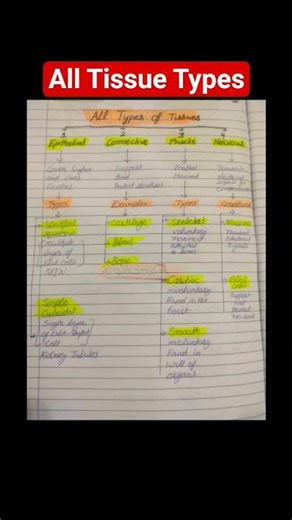 All Tissue Types
All Types of Tissues
Epithelial Connective Muscle Nervous
Cover Surface Support Enables Transmits
and lines Bind Movement electrical
Cavities Protect structures signals for
Communication
Types Examples Types
Cartilage Skeletal Neurons
voluntary Transmit
Multiple Blood movement Electrical
layer of attached Signals
flat cells to bones
Skin
Bone
Cardiac Glial
involuntary cells
Simple Found in the Support
Cuboidal heart and
Simple layer Protect
of Cube shaped neurons
Cell Smooth
Kidney Tubules involuntary
Found in
wall of
organs